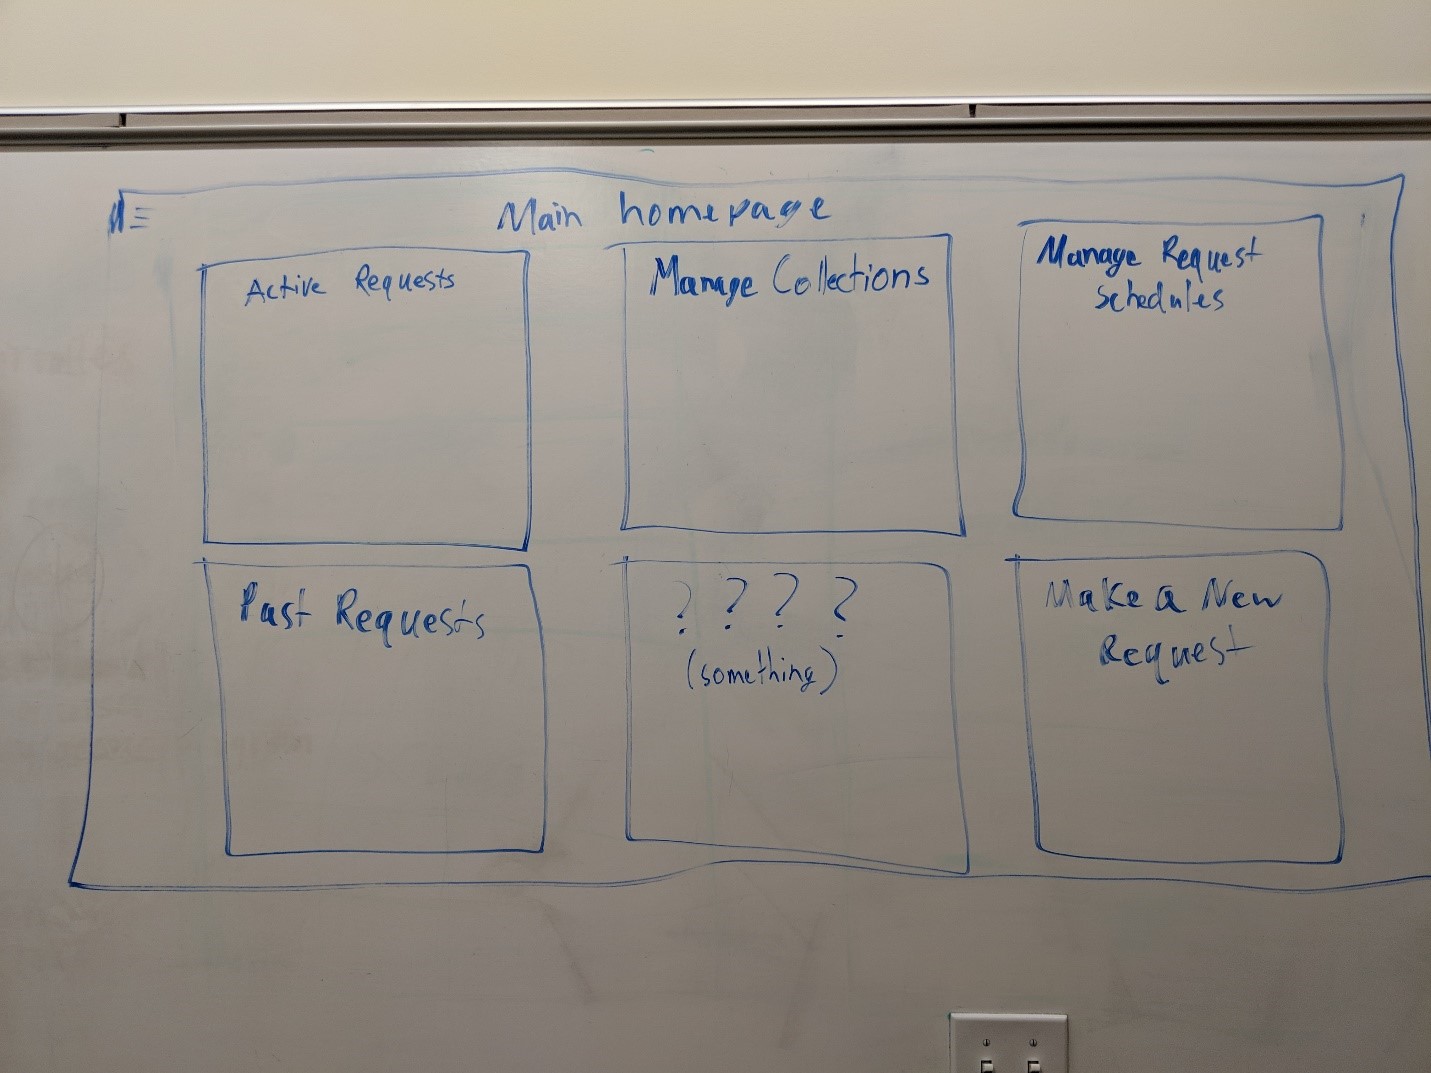 Main homepage
Active Requests
Manage Collections
Manage Request
Schedules
Past Requests
? ? ? ?
(something)
Make a New
Request